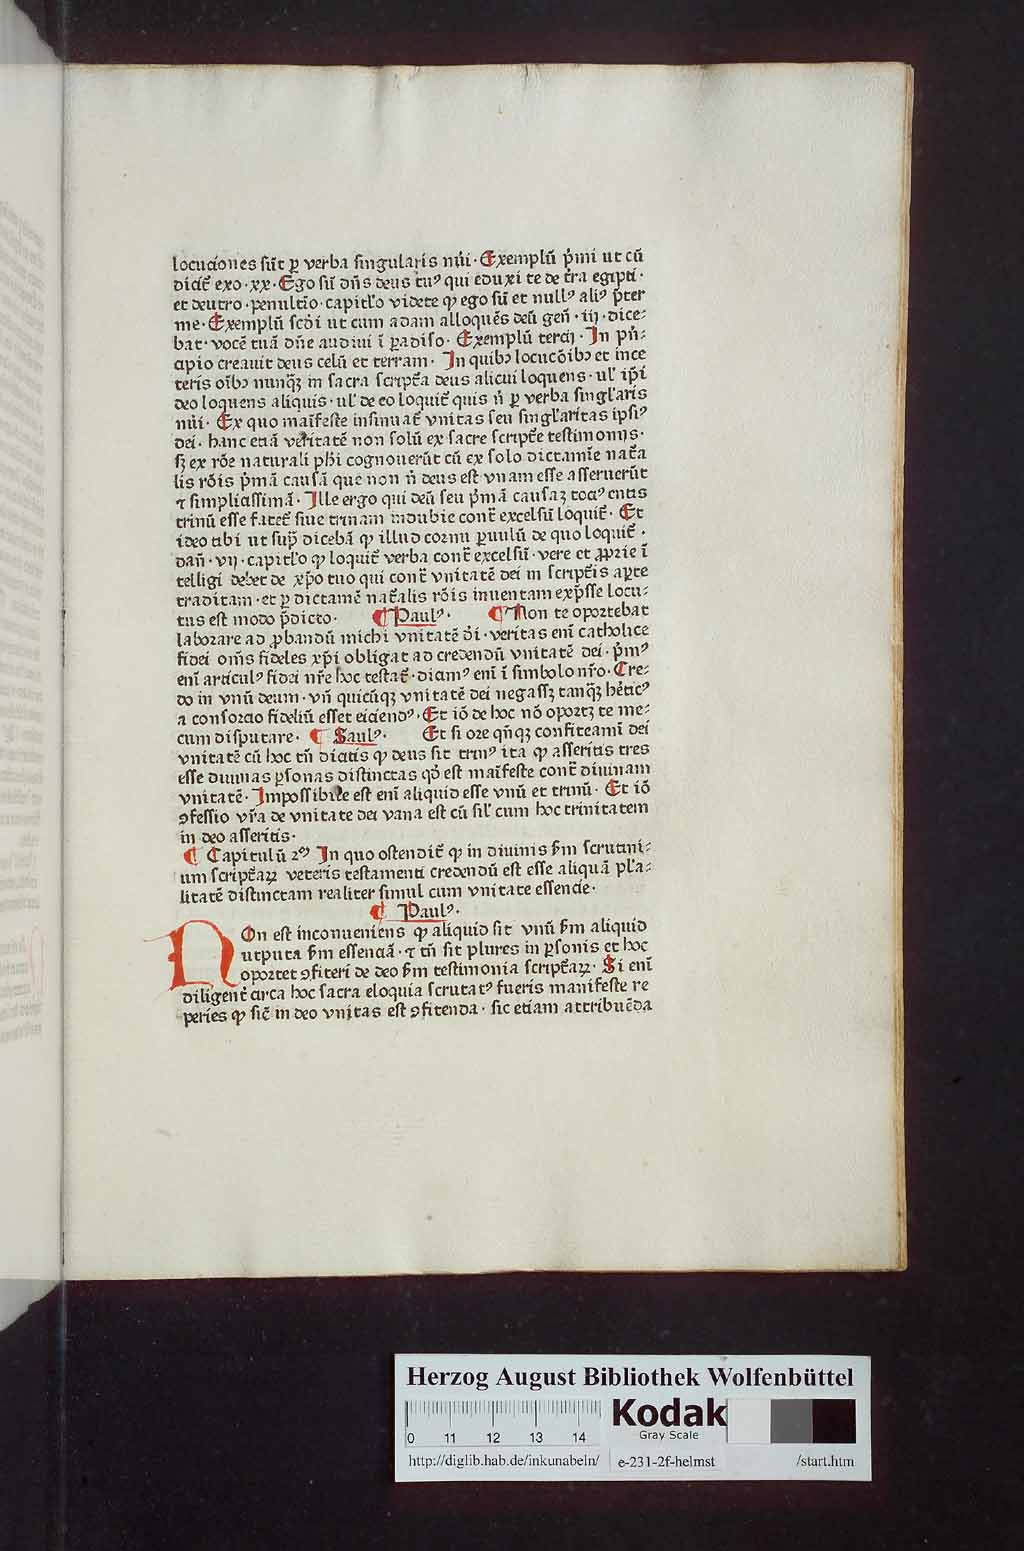 locuciones sūt ꝑ verba singularis nūi · Exemplū p̄mi ut cū
dicit̄ exo · xx · Ego sū dn̄s deus tuꝰ qui eduxi te de t̄ra egipti ·
et deutro · penultīo · capitl'o videte ꝙ ego sū et nullꝰ aliꝰ p̄ter
me · Exemplū scd̄i ut cum adam alloquēs deū gen̄ · iij · dice⸗
bat · vocē tuā dn̄e audiui ī ꝑadiso · Exemplū tercij · In pn̄⸗
cipio creauit deus celū et terram · In quibꝫ locucōibꝫ et ī ce
teris oībꝫ nunq̄ꝫ in sacra script̄a deus alicui loquens · ul' ip̄i
deo loquens aliquis · ul' de eo loquit̄ quis n̄ ꝑ verba singl'aris
nūi · Ex quo maīfeste insinuat̄ vnitas seu singl'aritas ipsiꝰ
dei · hanc etiā veritatē non solū ex sacre script̄e testimonijs ·
sꝫ ex rōe naturali phī cognouerūt cū ex solo dictamīe nat̄a
lis rōis p̄mā causā que non n̄ deus est vnam esse asseruerūt
⁊ simplicissimā · Ille ergo qui deū seu p̄mā causaꝫ tociꝰ entis
trinū esse fatet̄ siue trinam indubie cont̄ excelsū loquit̄ · Et
ideo tibi ut sup̄ dicebā ꝙ illud cornu ꝑuulū de quo loquit̄ ·
dan̄ · vij · capitl'o ꝙ loquit̄ verba cont̄ excelsū · vere et ꝓprie ī
telligi debet de xp̄o tuo qui cont̄ vnitatē dei in script̄is aꝑte
traditam · et ꝑ dictamē nat̄alis rōis inuentam exp̄sse locu⸗
tus est modo p̄dicto · ¶ Paulꝰ · ¶ Non te oportebat
laborare ad ꝓbandū michi vnitatē dī · veritas enī catholice
fidei om̄s fideles xp̄i obligat ad credendū vnitatē dei · p̄mꝰ
enī articulꝰ fidei nr̄e hoc testat̄ · diciꝰ enī ī simbolo nr̄o · Cre⸗
do in vnū deum · vn̄ quicūqꝫ vnitatē dei negassꝫ tanq̄ꝫ het̄icꝰ
a consorcio fideliū esset eiciendꝰ · Et iō de hoc nō oportꝫ te me⸗
cum disputare · ¶ Saulꝰ · Et si ore qn̄qꝫ confiteamī dei
vnitatē cū hoc tn̄ dicitis ꝙ deus sit trinꝰ ita ꝙ asseritis tres
esse diuinas ꝑsonas distinctas qd̄ est maīfeste cont̄ diuinam
vnitatē · Impossibile est enī aliquid esse vnū et trinū · Et iō
ꝯfessio vr̄a de vnitate dei vana est cū sil' cum hoc trinitatem
in deo asseritis ·
¶ Capitulū 2ᵐ In quo ostendit̄ ꝙ in diuinis s̄m scrutini⸗
um script̄aꝝ veteris testamenti credendū est esse aliquā pl'a⸗
litatē distinctam realiter simul cum vnitate essencie ·
¶ Paulꝰ ·
NOn est inconueniens ꝙ aliquid sit vnū s̄m aliquid
utputa s̄m essenciā · ⁊ tn̄ sit plures in ꝑsonis et hoc
oportet ꝯfiteri de deo s̄m testimonia script̄aꝝ · Si enī
diligent̄ circa hoc sacra eloquia scrutatꝰ fueris manifeste re
peries ꝙ sic̄ in deo vnitas est ꝯfitenda · sic etiam attribuēda
Herzog August Bibliothek Wolfenbüttel
0 11 12 13 14
Kodak
Gray Scale
http://diglib.hab.de/inkunabeln/ e-231-2f-helmst /start.htm